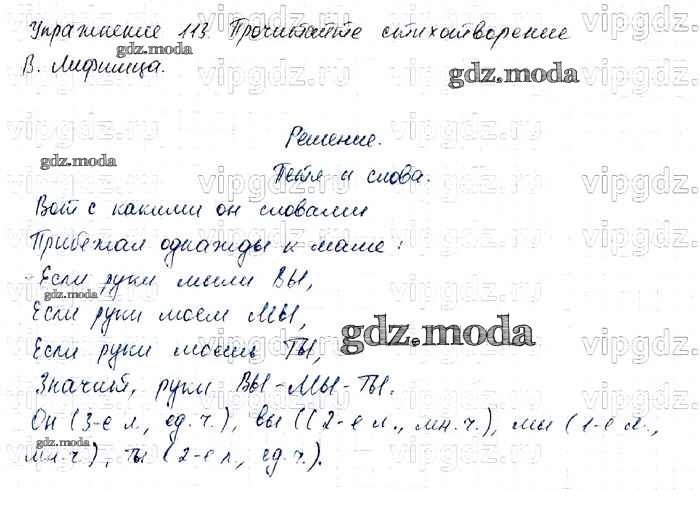 Упражнение 113. Прочитайте стихотворение
В. Лифшица.
Решение.
Петя и слова.
Вот с какими он словами
Прибежал однажды к маме:
-Если руки мыли ВЫ,
Если руки моем МЫ,
Если руки моешь ТЫ,
Значит, руки ВЫ-МЫ-ТЫ.
Он (3-е л., ед.ч.), вы ((2-е л., мн.ч.), мы (1-е л.,
мн.ч.), ты (2-е л., ед.ч.).
gdz.moda
gdz.moda
gdz.moda
gdz.moda
gdz.moda
gdz.moda
gdz.moda
vipgdz.ru